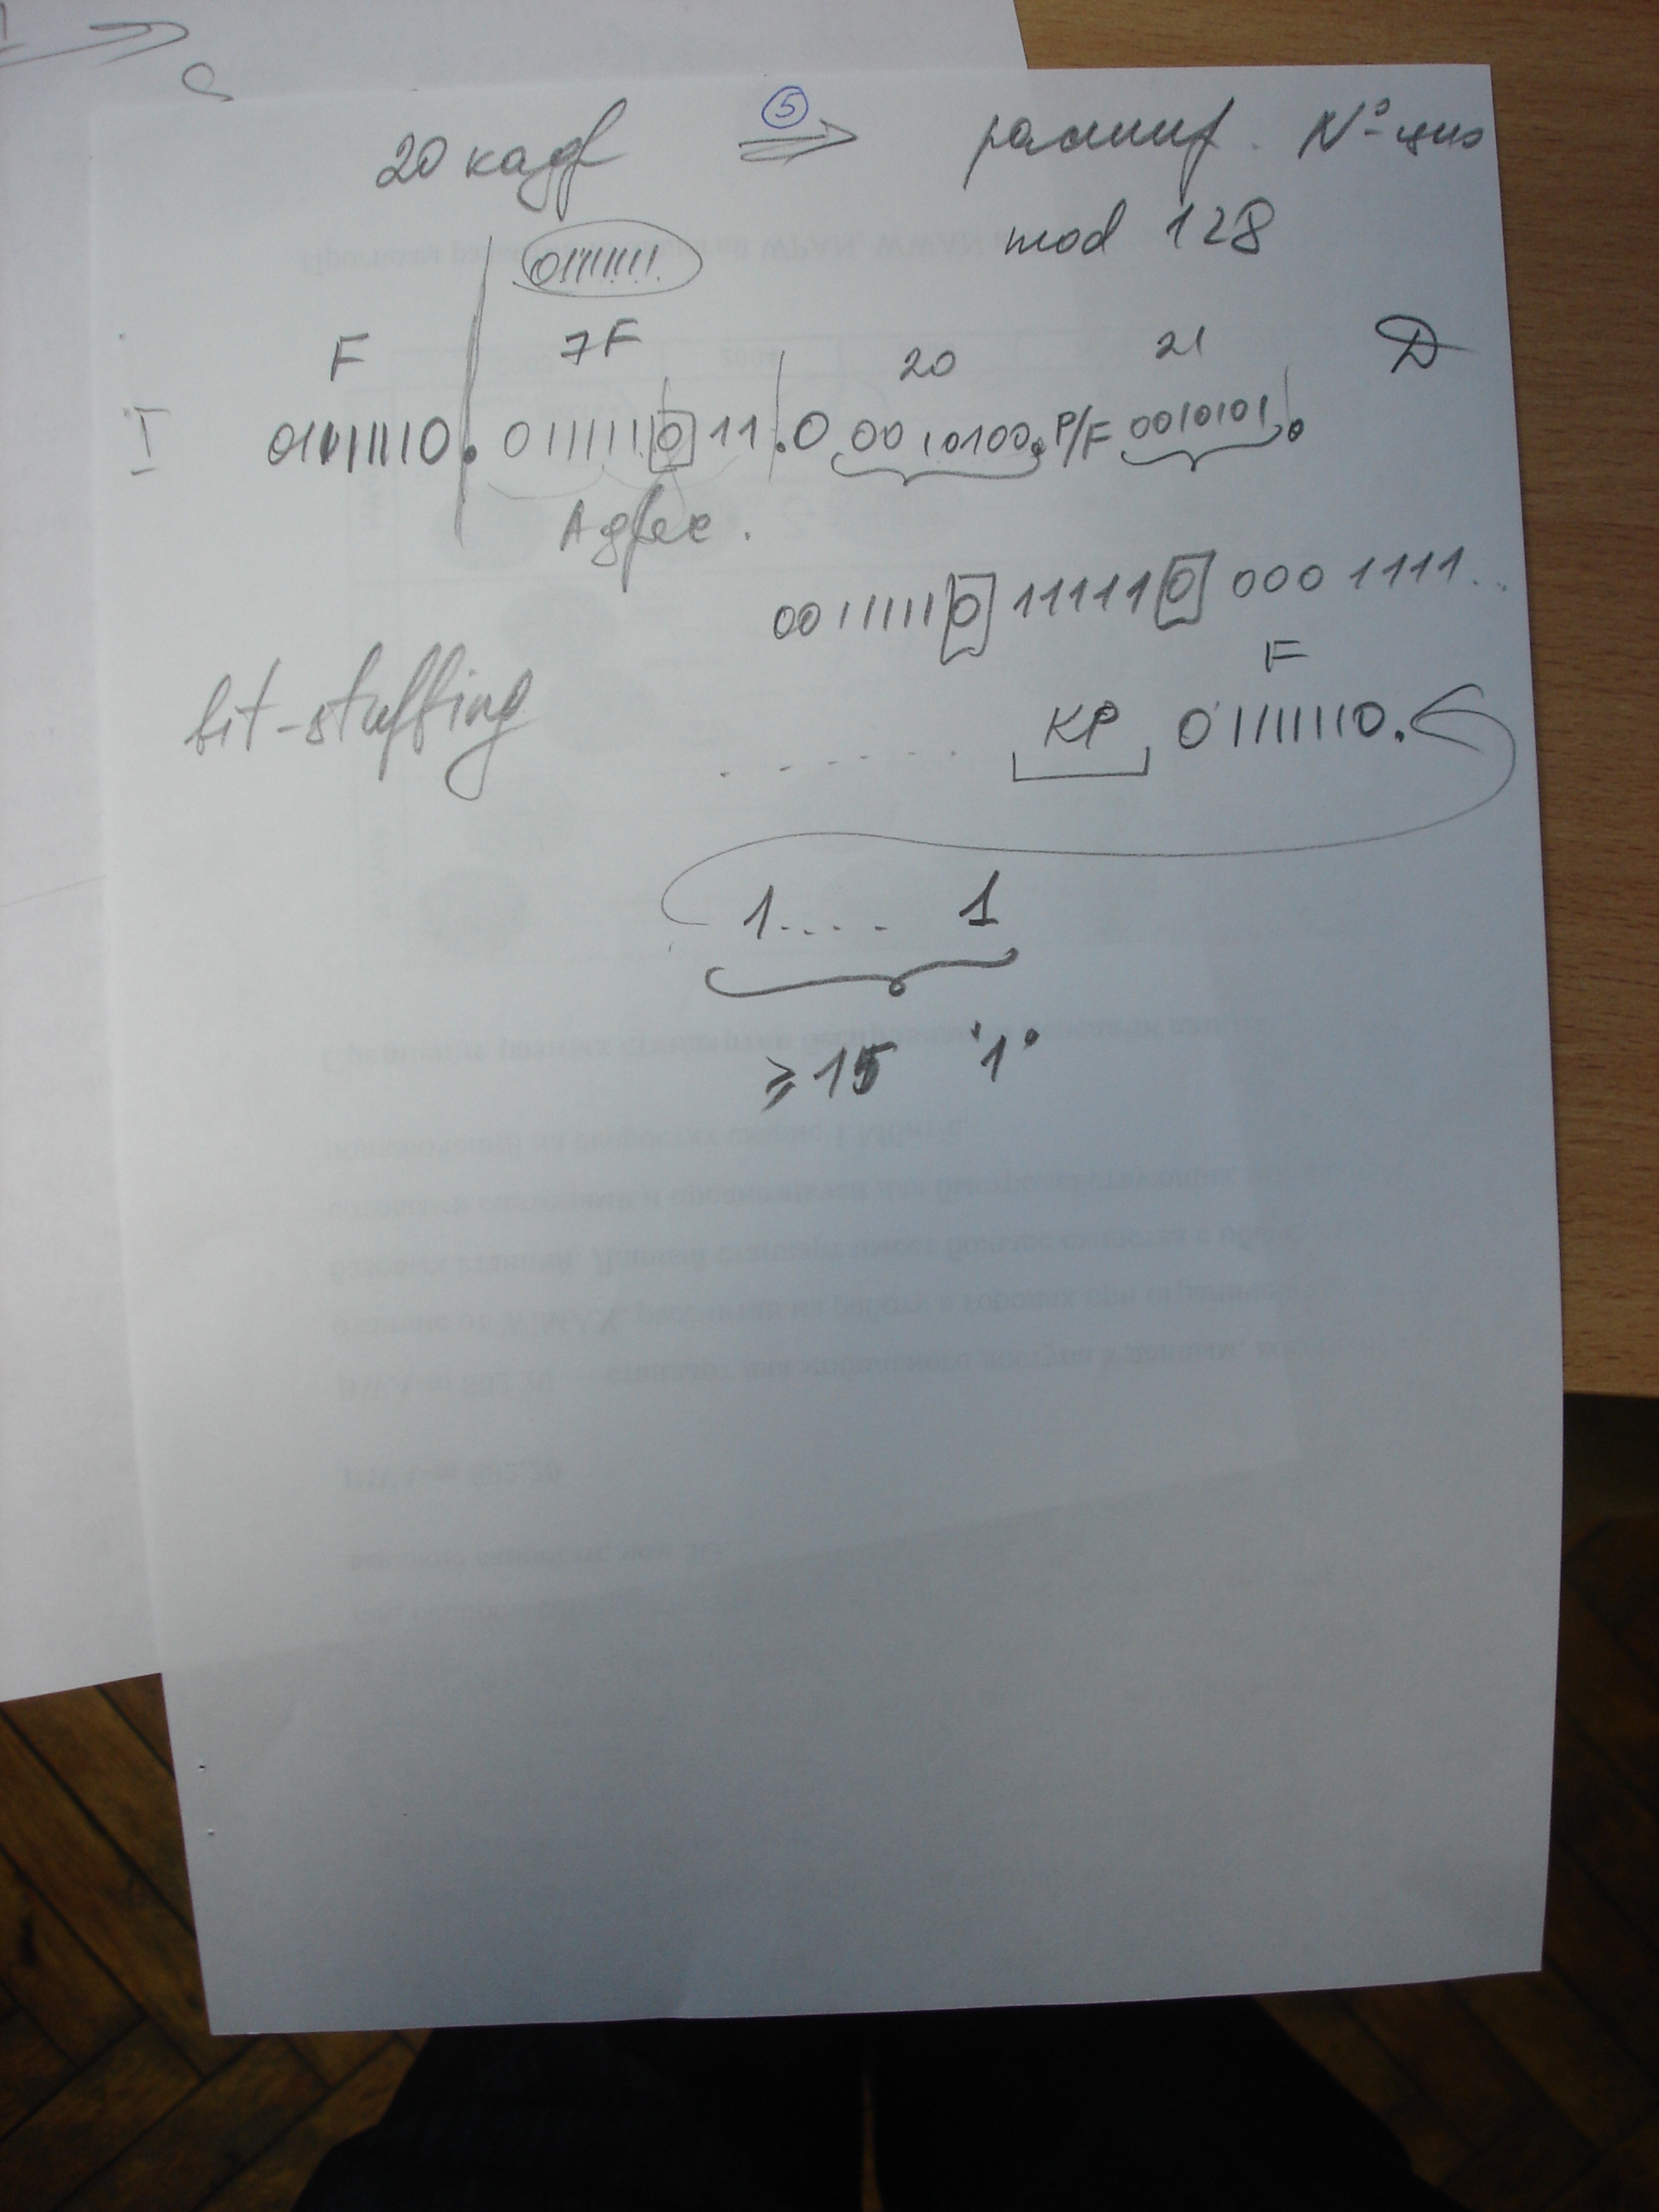 20 кадр ⑤ ⇒ расшир. №-цию
mod 128
01111111
F 7F 20 21 D
I 01111110. 011111 0 11.0 0010100. P/F 0010101.
Адрес.
0011111 0 11111 0 000 1111...
bit-stuffing
F
....... КР 01111110.
1.... 1
⩾15 '1'